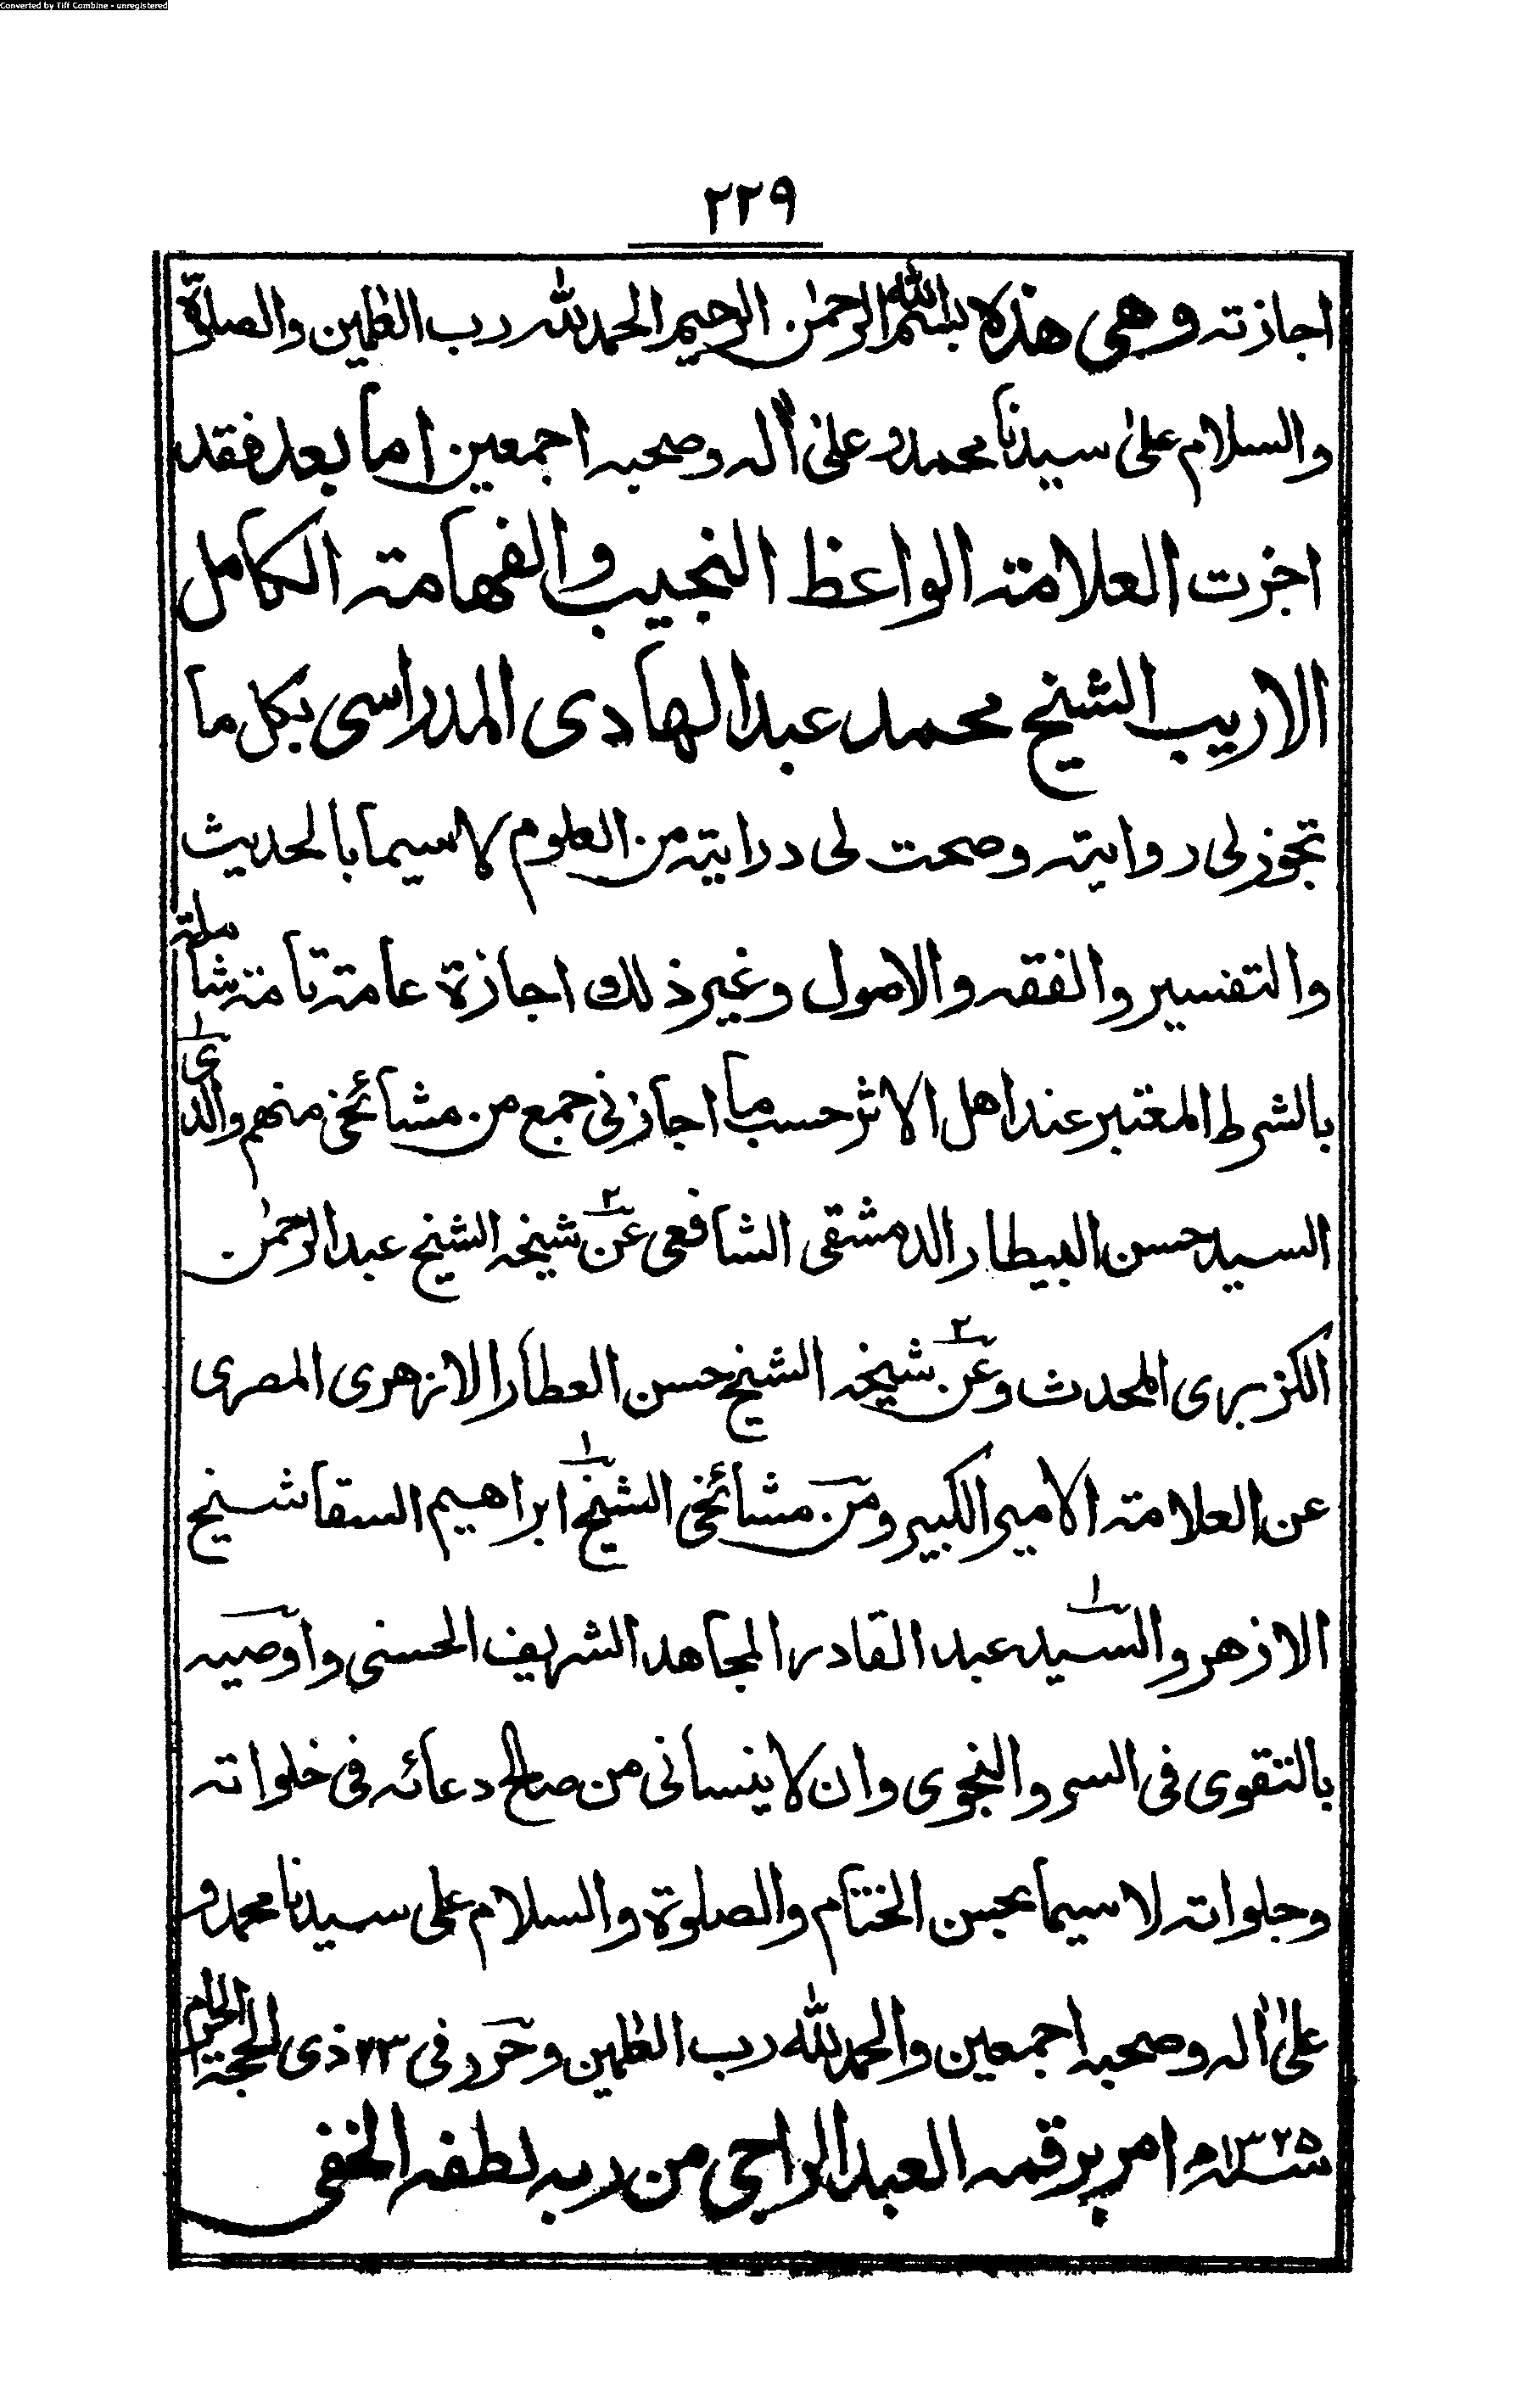 Converted by Tiff Combine - unregistered
٢٢٩
اجازته وهي هذه بسم الله الرحمٰن الرحيم الحمد لله رب العٰلمين والصلوٰة
والسلام علىٰ سيدنا محمد و علىٰ اٰله وصحبه اجمعين اما بعد فقد
اجزت العلامة الواعظ النجيب والفهامة الكامل
الاريب الشيخ محمد عبد الهادى المدراسى بكل ما
تجوز لى روايته وصحت لى درايته من العلوم لا سيما بالحديث
والتفسير والفقه والاصول وغير ذلك اجازة عامة تامة شاملة
بالشرط المعتبر عند اهل الاثر حسب ما اجازنى جمع من مشائخى منهم والدى ١
السيد حسن البيطار الدمشقى الشافعى عن ٢ شيخه الشيخ عبد الرحمٰن
الكزبرى المحدث وعن ٢ شيخه الشيخ حسن العطار الازهرى المصرى
عن العلامة الامير الكبير ومن مشائخى الشيخ ١ ابراهيم السقا شيخ
الازهر والسيد ١ عبد القادر المجاهد الشريف الحسنى واوصيه
بالتقوى فى السر والنجوى وان لا ينسانى من صالح دعائه فى خلواته
وجلواته لا سيما بحسن الختام والصلوة والسلام على سيدنا محمد و
علىٰ اٰله وصحبه اجمعين والحمد لله رب العٰلمين وحرر فى ٢٣ ذى الحجة الحرام
سنه ١٣٢٥ه امر برقمه العبد الراجى من ربه لطفه الخفى